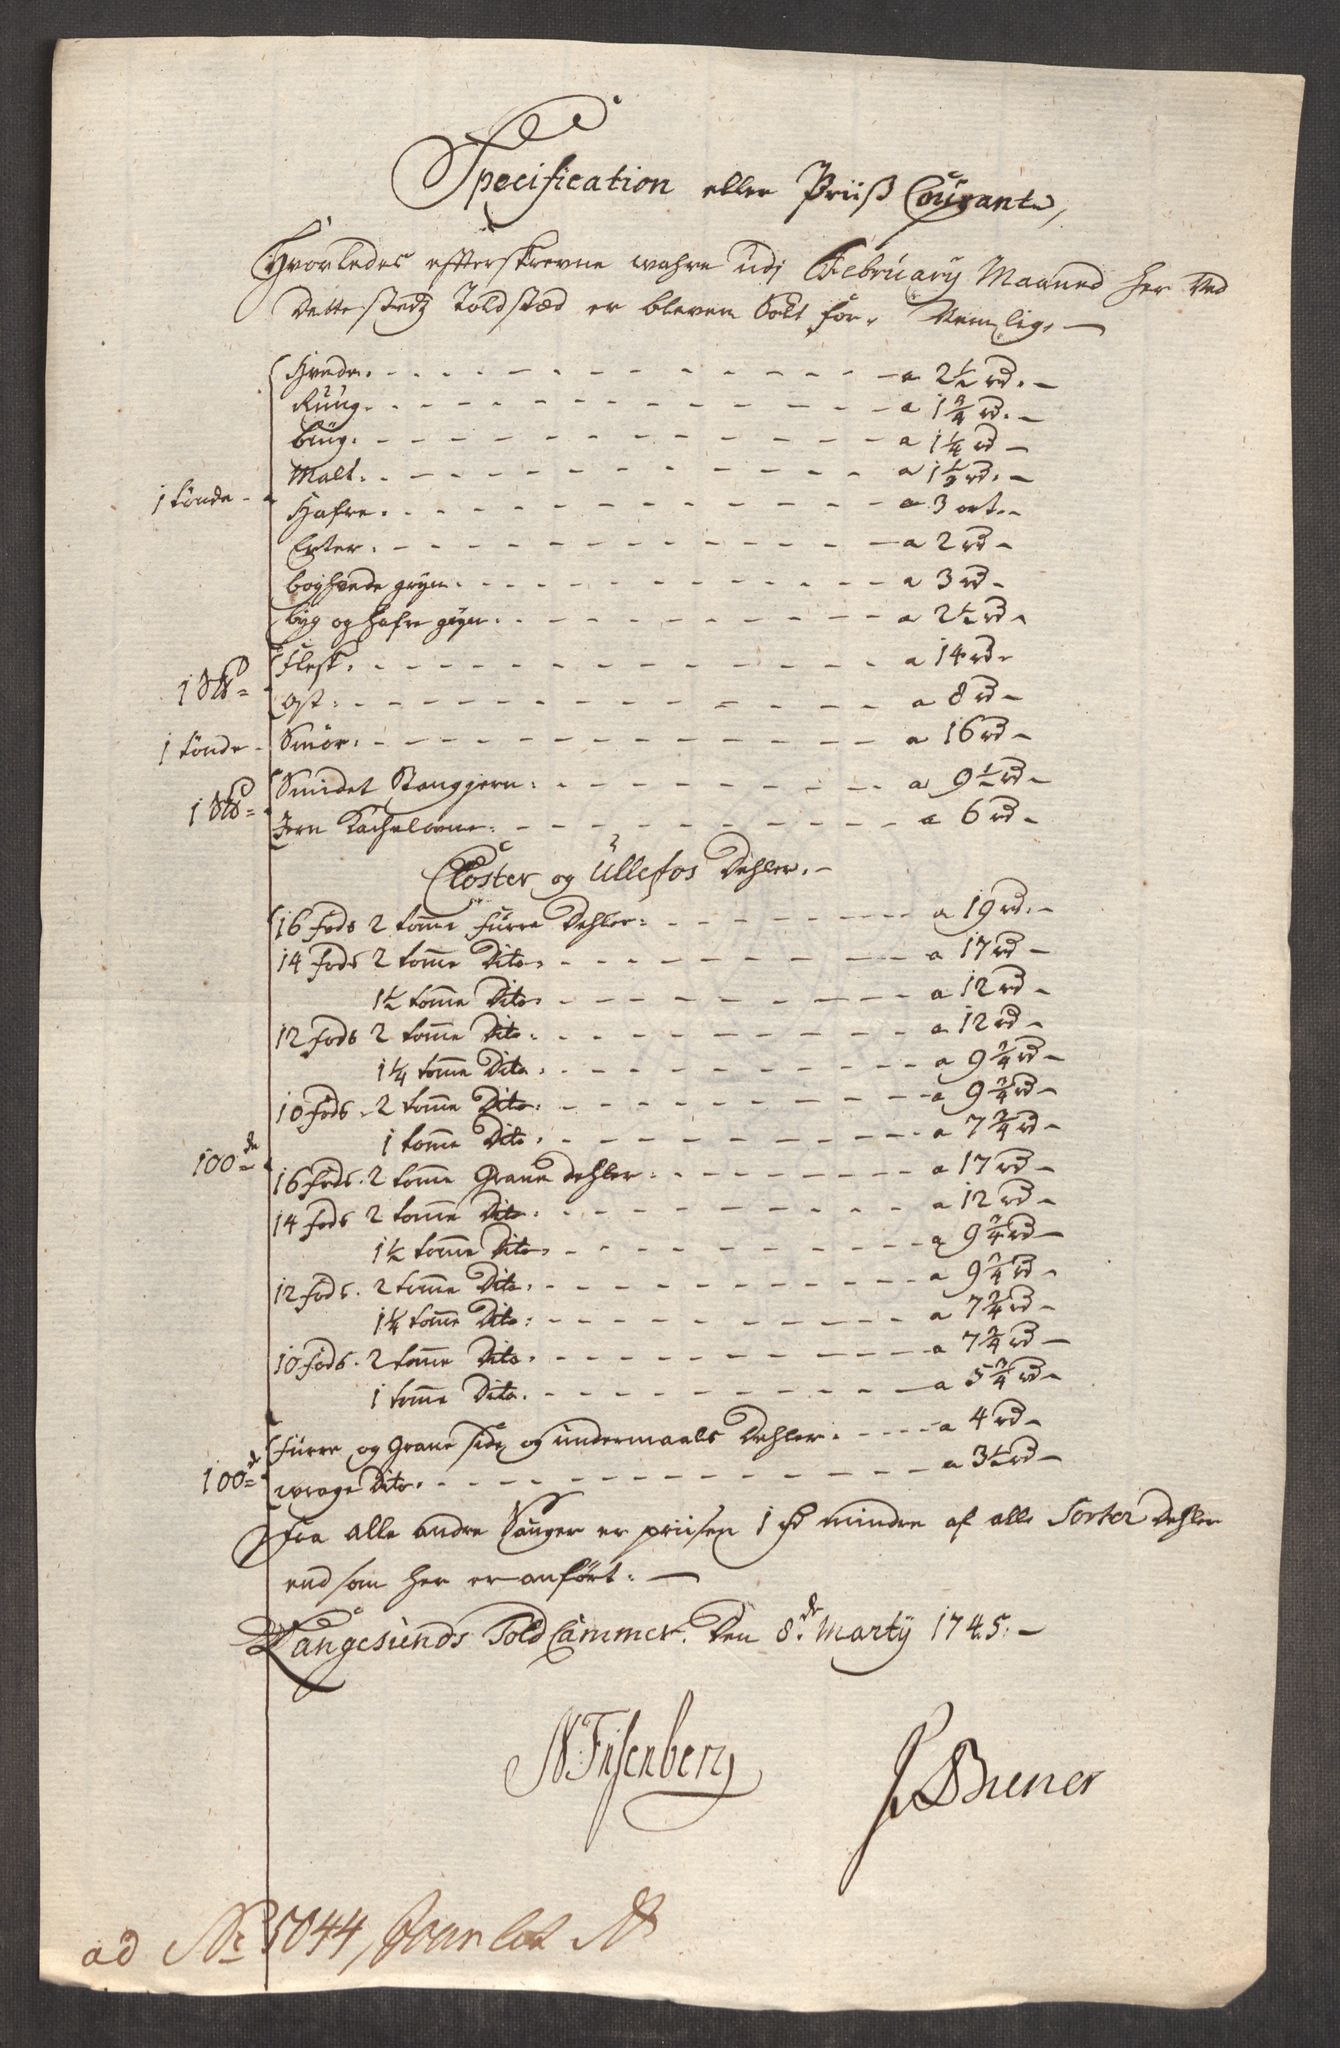 Specification eller Priiß Courante,
Hvorledes efterskrevne wahre udj February Maaned her ved
dette stedz Toldsted er bleven Solt for. Nemlig. —
Hvede. - - - a 2½ rd. —
Rúúg. - - - a 1¾ rd. —
búúg. - - - a 1¼ rd —
Malt. - - - a 1½ rd. —
1 tönde - Hafre. - - - a 3 ort. -
Erter. - - - a 2 rd -
boghvede gryn. - - - a 3 rd -
byg og hafre gryn. - - - a 2½ rd -
Flesk. - - - a 14 rd -
1 S℔ = Ost. - - - a 8 rd -
1 tönde - Smör. - - - a 16 rd -
Smidet Stangjern. - - - a 9½ rd -
1 S℔ = Jern Kachelovne. - - - a 6 rd -
Closter og Ullefos Dehler. -
16 fods 2 tom̄e fúrre Dehler. - - - a 19 rd. -
14 fods 2 tom̄e Dito. - - - a 17 rd -
1½ tom̄e Dito. - - - a 12 rd -
12 fods 2 tom̄e Dito. - - - a 12 rd -
1¼ tom̄e Dito. - - - a 9¾ rd -
10 fods. 2 tom̄e Dito. - - - a 9¾ rd -
1 tom̄e Dito. - - - a 7¾ rd -
100de 16 fods. 2 tom̄e Grane dehler. - - - a 17 rd -
14 fods 2 tom̄e Dito. - - - a 12 rd -
1½ tom̄e Dito. - - - a 9¾ rd -
12 fods. 2 tom̄e Dito. - - - a 9¾ rd -
1¼ tom̄e Dito. - - - a 7¾ rd -
10 fods. 2 tom̄e Dito. - - - a 7¾ rd —
1 tom̄e Dito. - - - a 5¾ rd -
fúrre og Grane side og úndermaals Dehler. - - - a 4 rd -
100de wrage Dito. - - - a 3½ rd -
Fra alle andre Sauger er priisen 1 rd mindre af alle Sorter Dehler
end som her er anfört. —
Langesúnds Told Cammer. Den 8de Marty 1745. —
N Eisenberg
Buener
ad No 5044,